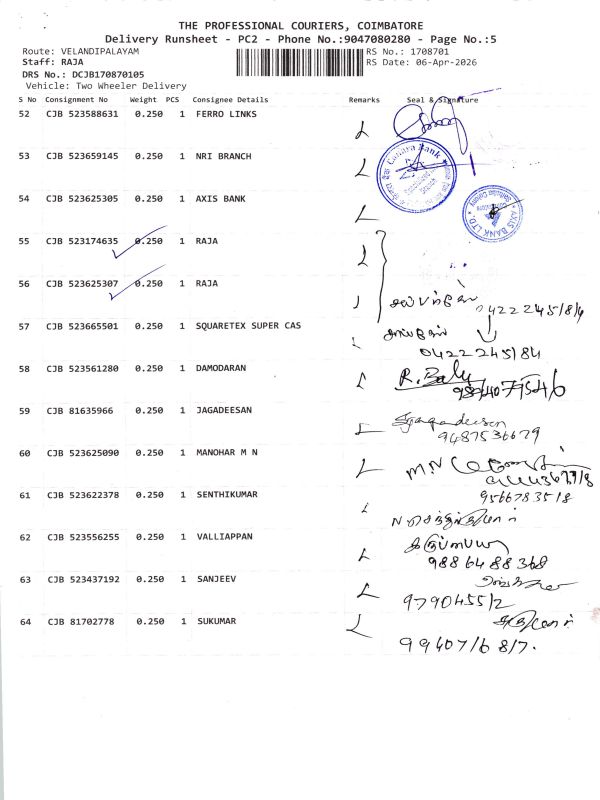 THE PROFESSIONAL COURIERS, COIMBATORE
Delivery Runsheet - PC2 - Phone No.:9047080280 - Page No.:5
Route: VELANDIPALAYAM RS No.: 1708701
Staff: RAJA RS Date: 06-Apr-2026
DRS No.: DCJB170870105
Vehicle: Two Wheeler Delivery
S No Consignment No Weight PCS Consignee Details Remarks Seal & Signature
52 CJB 523588631 0.250 1 FERRO LINKS
53 CJB 523659145 0.250 1 NRI BRANCH
Canara Bank
54 CJB 523625305 0.250 1 AXIS BANK
AXIS BANK LTD.
55 CJB 523174635 0.250 1 RAJA
56 CJB 523625307 0.250 1 RAJA
57 CJB 523665501 0.250 1 SQUARETEX SUPER CAS
0422245184
58 CJB 523561280 0.250 1 DAMODARAN
R. Baly
59 CJB 81635966 0.250 1 JAGADEESAN
Jagadeesan
9487536679
60 CJB 523625090 0.250 1 MANOHAR M N
M.N
61 CJB 523622378 0.250 1 SENTHIKUMAR
9566783518
62 CJB 523556255 0.250 1 VALLIAPPAN
9886488368
63 CJB 523437192 0.250 1 SANJEEV
64 CJB 81702778 0.250 1 SUKUMAR